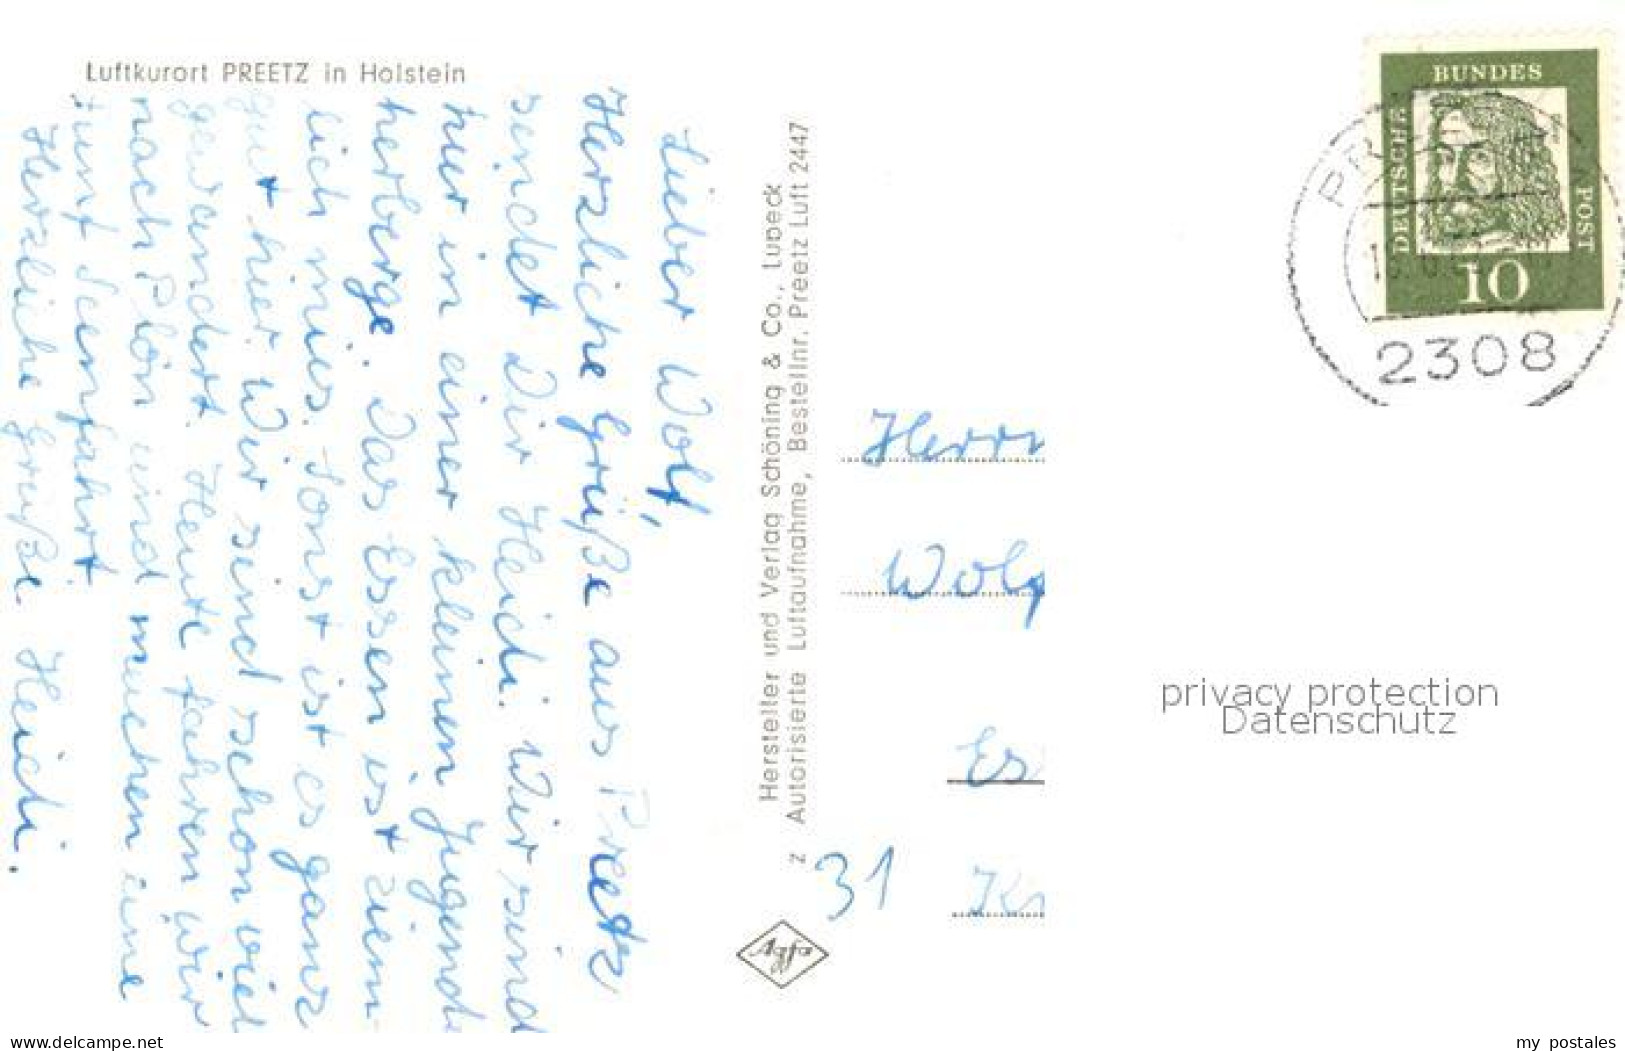 Luftkurort PREETZ in Holstein
Lieber Wolf,
Herzliche Grüße aus Preetz
sendet Dir Heidi. Wir sind
hier in einer kleinen Jugend
herberge. Das Essen ist ziem-
lich mies. Sonst ist es ganz
gut hier. Wir sind schon viel
gewandert. Heute fahren wir
nach Plön und machen eine
fünf Seenfahrt.
Herzliche Grüße Heidi.
Hersteller und Verlag Schöning & Co., Lübeck
z Autorisierte Luftaufnahme, Bestellnr. Preetz Luft 2447
Agfa
DEUTSCHE BUNDES POST
10
2308
Herrn
Wolf
Es
31 Kr
privacy protection
Datenschutz
www.delcampe.net
my_postales